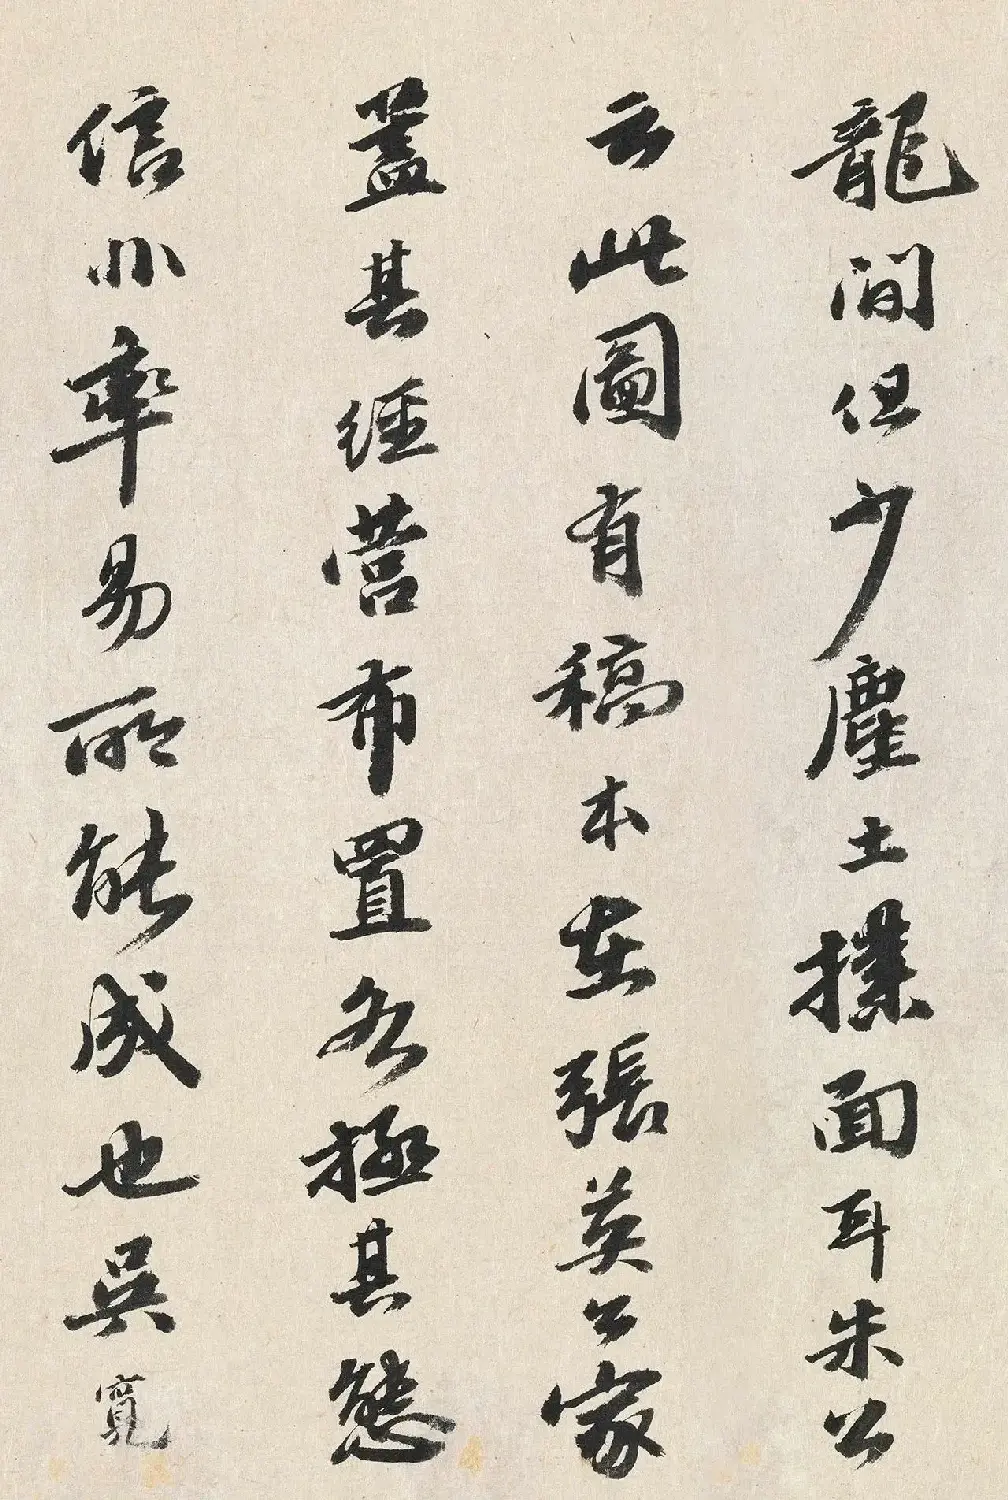 龍間但少塵土撲面耳朱公
云此圖有稿本在張英公家
蓋其經營布置各極其態
信非率易所能成也吳寬